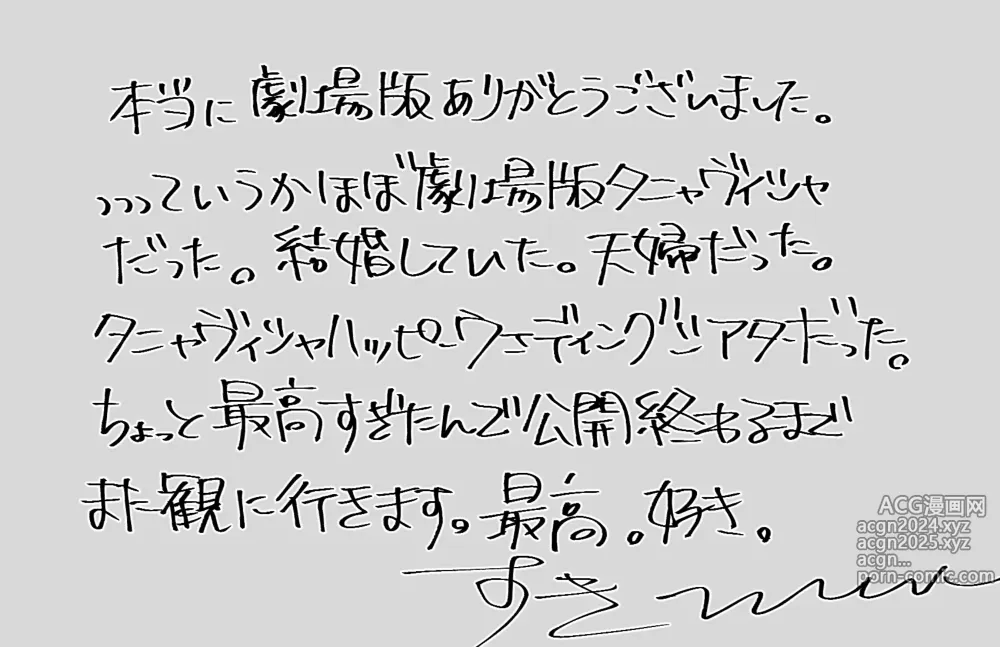 本当に劇場版ありがとうございました。
っっっていうかほぼ劇場版タニャヴィシャ
だった。結婚していた。夫婦だった。
タニャヴィシャハッピーウェディングシアターだった。
ちょっと最高すぎたんで公開終わるまで
また観に行きます。最高。好き。
すき
ACG漫画网
acgn2024.xyz
acgn2025.xyz
acgn...
porn-comic.com